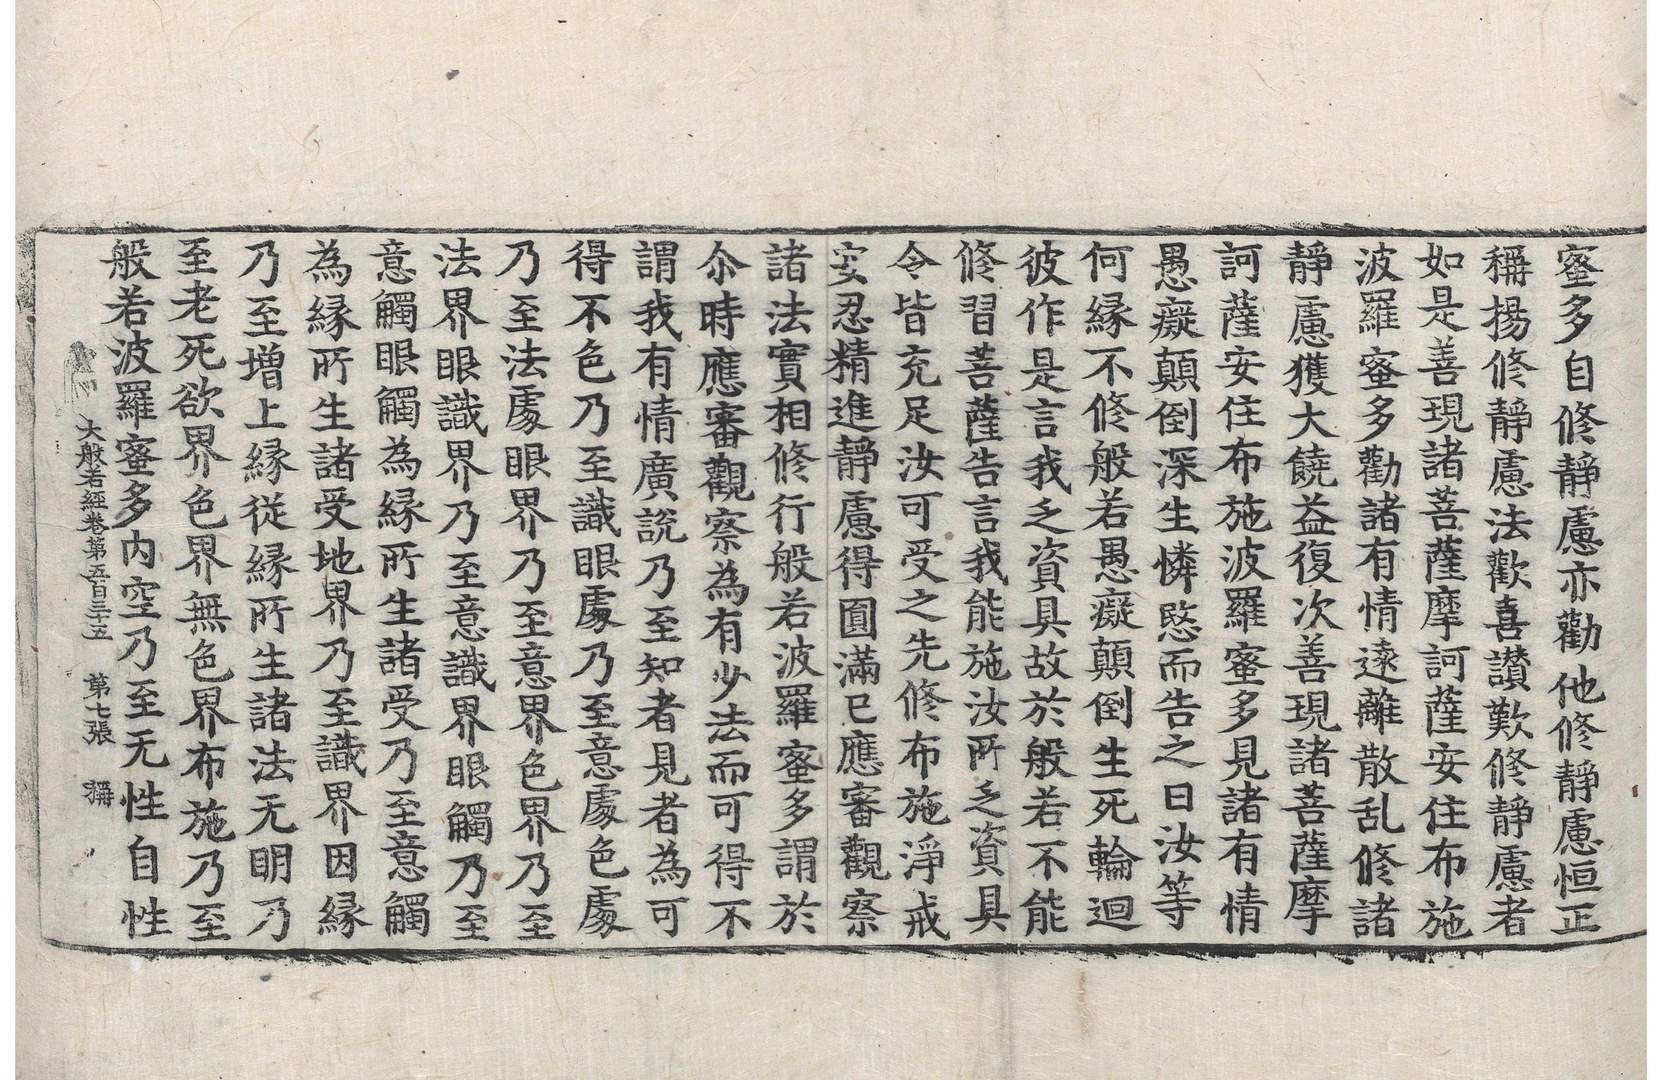 蜜多自修靜慮亦勸他修靜慮恒正
稱揚修靜慮法歡喜讃歎修靜慮者
如是善現諸菩薩摩訶薩安住布施
波羅蜜多勸諸有情遠離散乱修諸
靜慮獲大饒益復次善現諸菩薩摩
訶薩安住布施波羅蜜多見諸有情
愚癡顛倒深生憐愍而告之曰汝等
何緣不修般若愚癡顛倒生死輪迴
彼作是言我乏資具故於般若不能
修習菩薩告言我能施汝所乏資具
令皆充足汝可受之先修布施淨戒
安忍精進靜慮得圓滿已應審觀察
諸法實相修行般若波羅蜜多謂於
尒時應審觀察為有少法而可得不
謂我有情廣說乃至知者見者為可
得不色乃至識眼處乃至意處色處
乃至法處眼界乃至意界色界乃至
法界眼識界乃至意識界眼觸乃至
意觸眼觸為緣所生諸受乃至意觸
為緣所生諸受地界乃至識界因緣
乃至增上緣從緣所生諸法无明乃
至老死欲界色界無色界布施乃至
般若波羅蜜多內空乃至无性自性
大般若經卷第五百三十五　第七張　稱